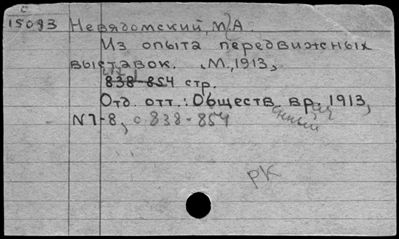 с
15093 Невядомский, М. А.
Из опыта передвижных
выставок. М., 1913,
838-854 стр.
Отд. отт.: Обществ. вр., 1913,
N7-8, с 838-854
РК